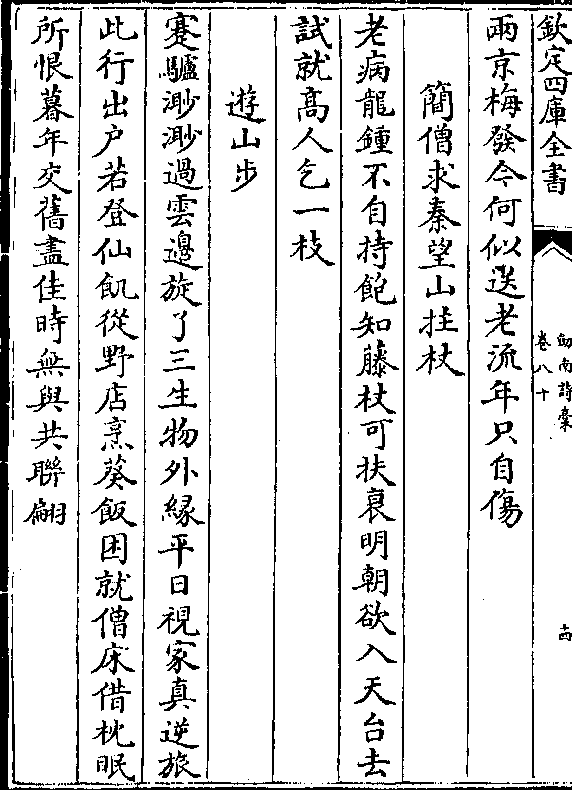 欽定四庫全書
劎南詩稾
卷八十
十四
兩京梅發今何似送老流年只自傷
簡僧求秦望山拄杖
老病龍鍾不自持飽知藤杖可扶衰明朝欲入天台去
試就髙人乞一枝
遊山步
蹇驢渺渺過雲邊旋了三生物外緣平日視家真逆旅
此行出户若登仙飢從野店烹葵飯困就僧床借枕眠
所恨暮年交舊盡佳時無與共聯翩